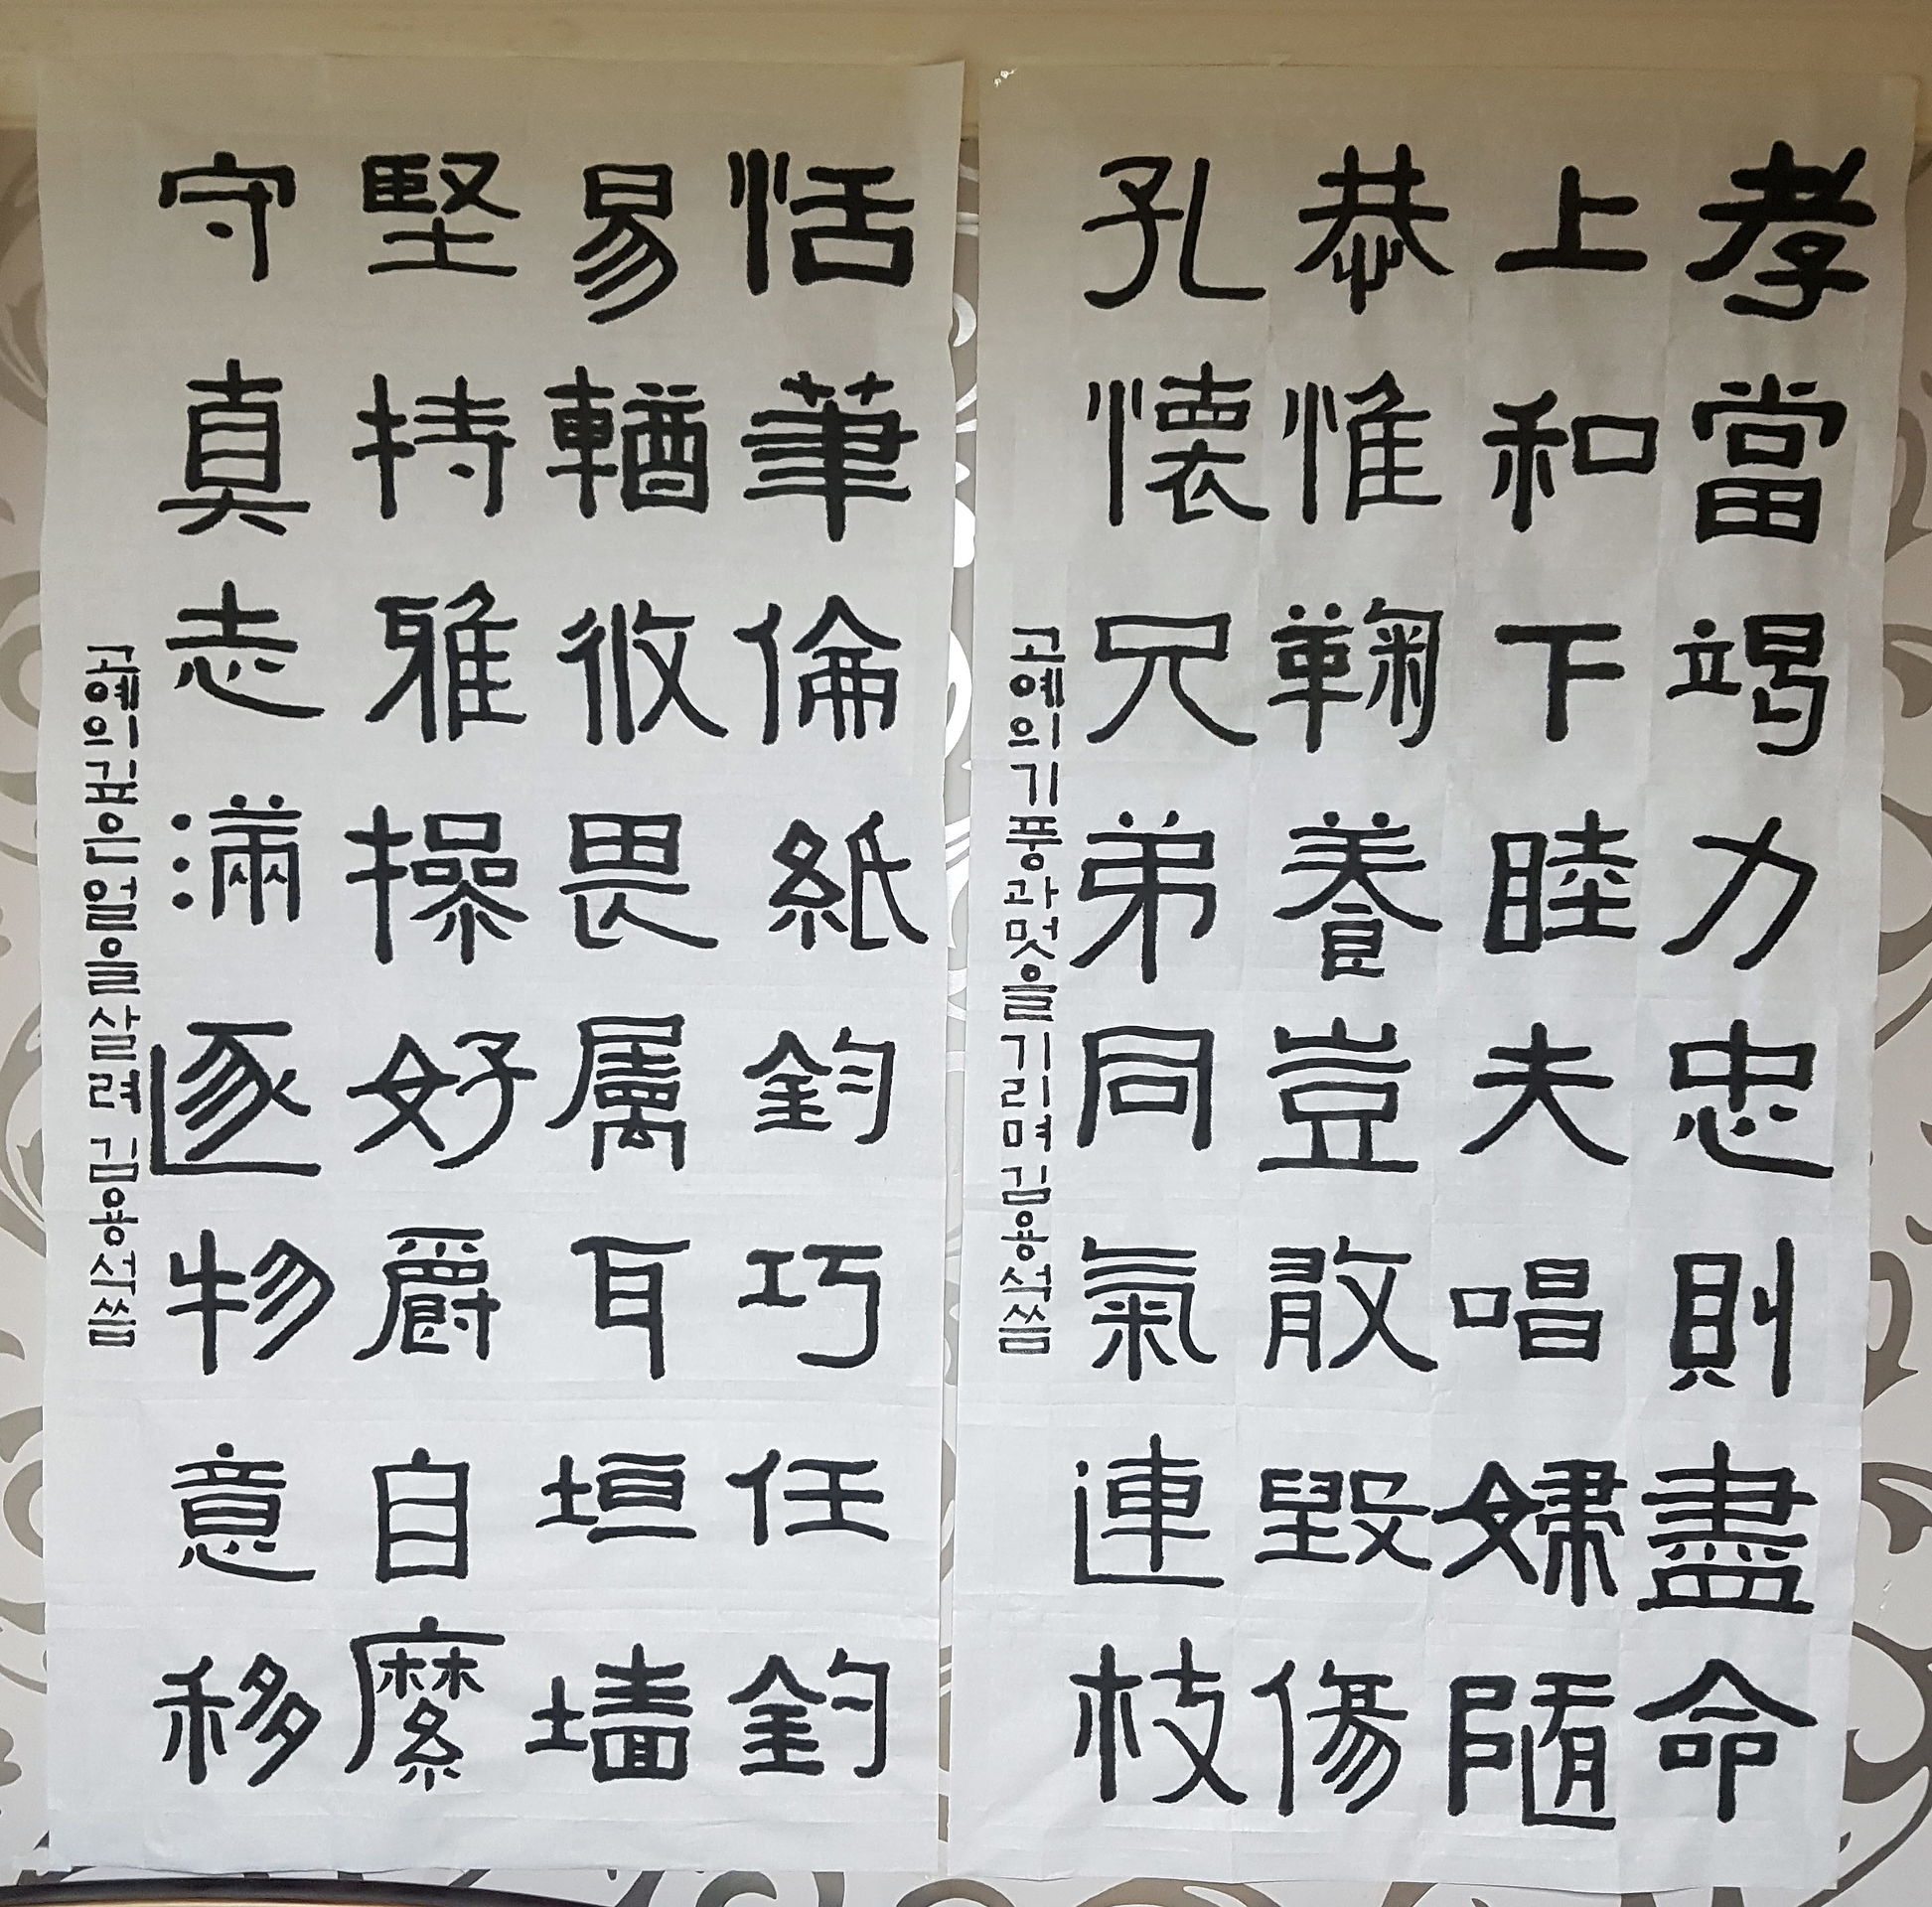 孝當竭力忠則盡命
上和下睦夫唱婦隨
恭惟鞠養豈敢毀傷
孔懷兄弟同氣連枝
고예의기풍과멋을기리며김용석씀
恬筆倫紙鈞巧任釣
易輶攸畏屬耳垣墻
堅持雅操好爵自縻
守真志滿逐物意移
고예의깊은얼을살려김용석씀